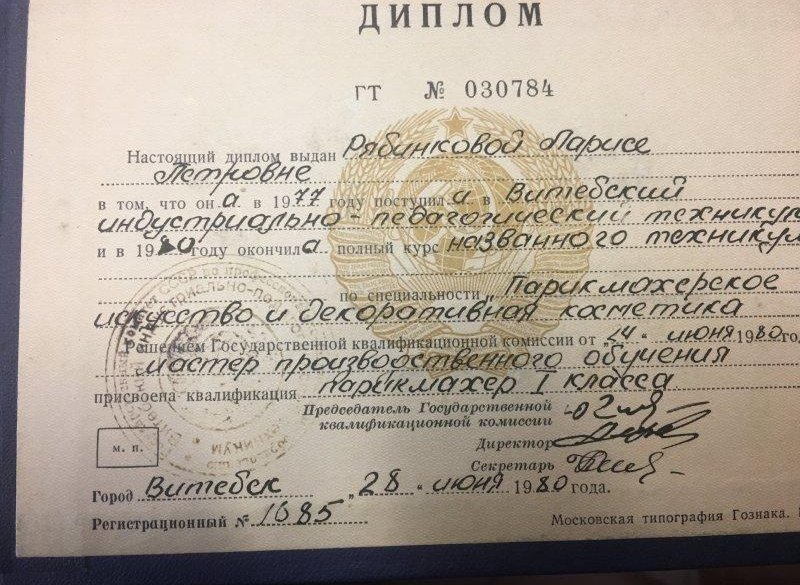 ДИПЛОМ
ГТ № 030784
Настоящий диплом выдан Рябинковой Ларисе
Петровне
в том, что она в 1977 году поступила в Витебский
индустриально-педагогический техникум
и в 1980 году окончила полный курс названного техникум
по специальности Парикмахерское
искусство и декоративная косметика
Решением Государственной квалификационной комиссии от "24" июня 1980 го
мастер производственного обучения
присвоена квалификация парикмахер I класса
Председатель Государственной
квалификационной комиссии
Директор
Секретарь
м. п.
Город Витебск "28" июня 1980 года.
Регистрационный № 1085
Московская типография Гознака.